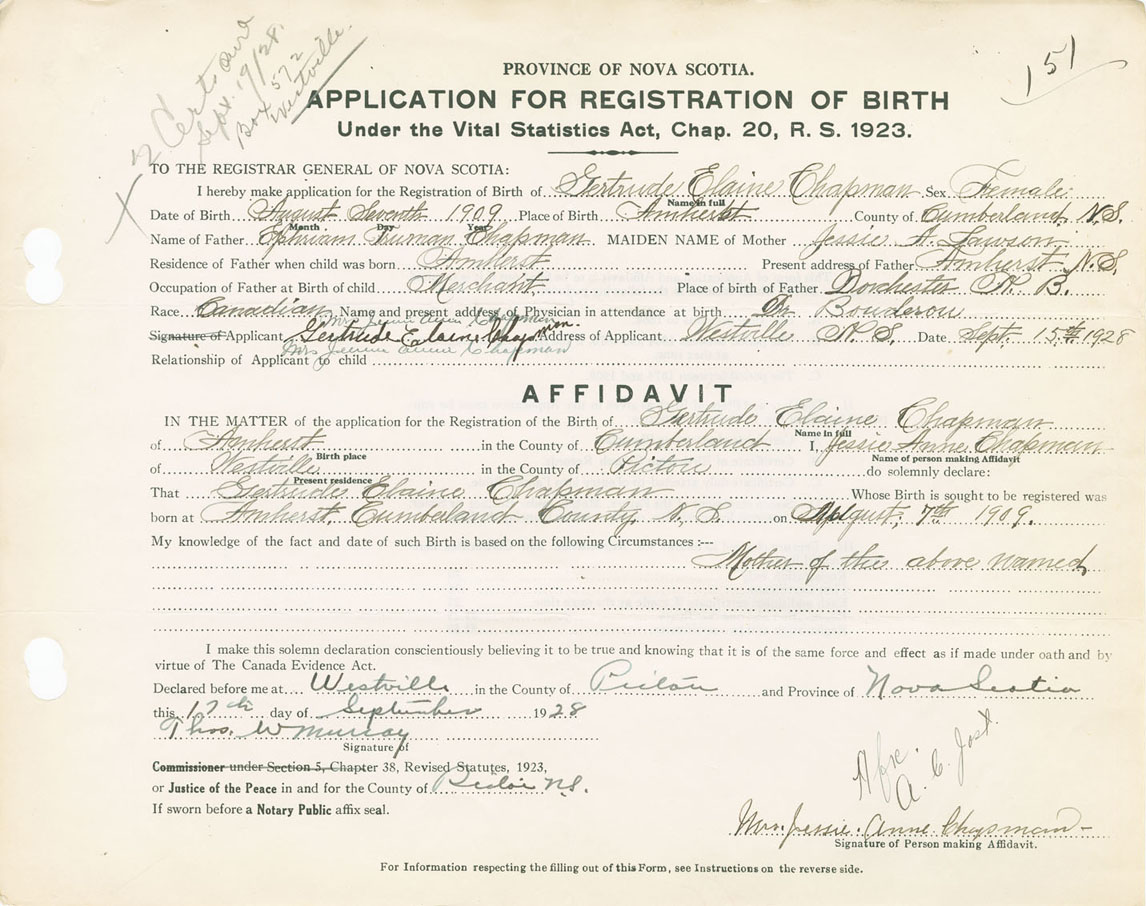 2 Certs and
Sept. 19/28.
Box 572
Westville.
X
151
PROVINCE OF NOVA SCOTIA.
APPLICATION FOR REGISTRATION OF BIRTH
Under the Vital Statistics Act, Chap. 20, R. S. 1923.
TO THE REGISTRAR GENERAL OF NOVA SCOTIA:
I hereby make application for the Registration of Birth of Gertrude Elaine Chapman Sex Female
Name in full
Date of Birth August Seventh 1909 Place of Birth Amherst County of Cumberland N.S.
Month Day Year
Name of Father Ephriam Truman Chapman MAIDEN NAME of Mother Jessie A. Lawson
Residence of Father when child was born Amherst Present address of Father Amherst N.S.
Occupation of Father at Birth of child Merchant Place of birth of Father Dorchester N. B.
Race Canadian Name and present address of Physician in attendance at birth Dr.
Signature of Applicant Gertrude Elaine Chapman. Address of Applicant Westville N. S. Date Sept. 15th 1928
Mrs Chapman
Relationship of Applicant to child
AFFIDAVIT
IN THE MATTER of the application for the Registration of the Birth of Gertrude Elaine Chapman
Name in full
of Amherst in the County of Cumberland I, Jessie Anne Chapman
Birth place Name of person making Affidavit
of Westville in the County of Pictou do solemnly declare:
Present residence
That Gertrude Elaine Chapman Whose Birth is sought to be registered was
born at Amherst, Cumberland County, N. S. on August 7th 1909.
My knowledge of the fact and date of such Birth is based on the following Circumstances :---
Mother of the above named,
I make this solemn declaration conscientiously believing it to be true and knowing that it is of the same force and effect as if made under oath and by
virtue of The Canada Evidence Act.
Declared before me at Westville in the County of Pictou and Province of Nova Scotia
this 17th day of September 1928
Thos. W Murray
Signature of
Commissioner under Section 5, Chapter 38, Revised Statutes, 1923,
or Justice of the Peace in and for the County of Pictou N.S.
If sworn before a Notary Public affix seal.
A. C. Jost.
Mrs. Jessie Anne Chapman
Signature of Person making Affidavit.
For Information respecting the filling out of this Form, see Instructions on the reverse side.